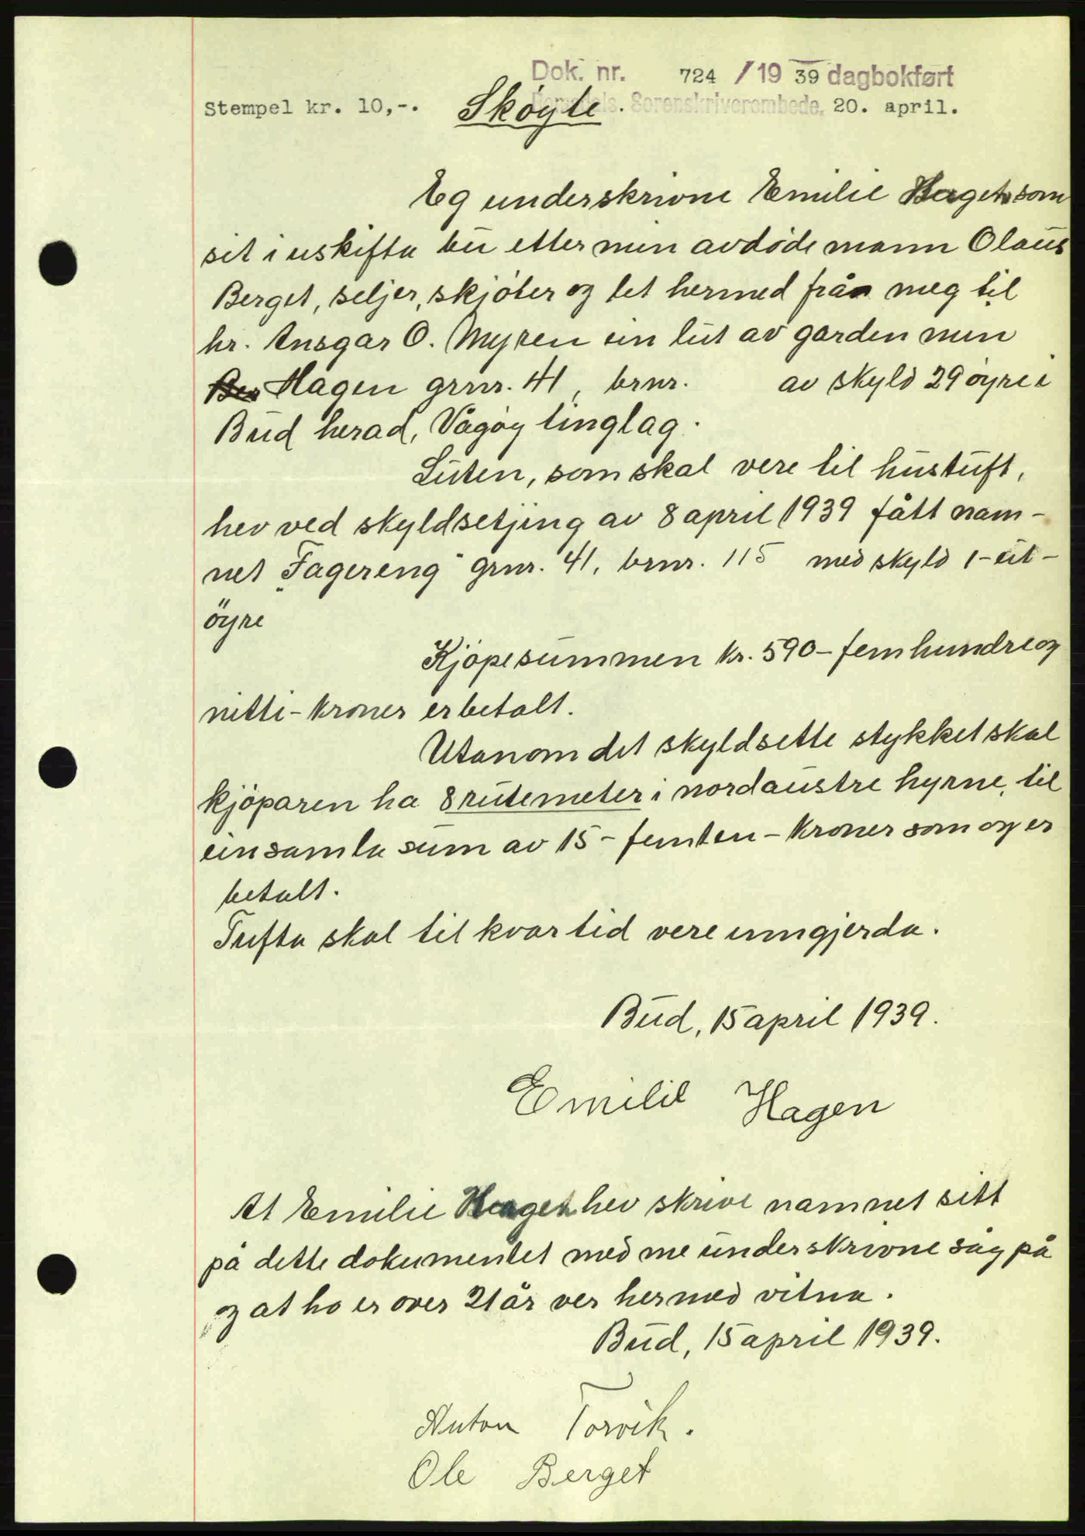 Dok. nr. 724 / 19 39 dagbokført
Stempel kr. 10,-. Skøyte. Sorenskriverembede, 20. april.
Eg underskrivne Emilie Hagen som
sit i uskifta bu etter min avdøde mann Olaus
Berget, seljer, skjöter og let hermed frå meg til
hr. Ansgar O. Myren ein lut av garden min
Hagen grnr. 41, brnr. av skyld 29 öyre i
Bud herad, Vågøy tinglag.
Luten, som skal vere til hustuft,
hev ved skyldsetjing av 8 april 1939 fått nam-
net „Fagereng" grnr. 41, brnr. 115 med skyld 1-eit-
öyre
Kjöpesummen kr. 590- femhundre og
nitti- kroner er betalt.
Utanom det skyldsette stykket skal
kjöparen ha 8 rutemeter i nordaustre hyrne, til
ein samla sum av 15 - femten - kroner som og er
betalt.
Tufta skal til kvar tid vere inngjerda.
Bud, 15 april 1939.
Emilie Hagen
At Emilie Hagen hev skrive namnet sitt
på dette dokumentet med me underskrivne såg på
og at ho er over 21 år ver hermed vitna.
Bud, 15 april 1939.
Anton Torvik.
Ole Berget